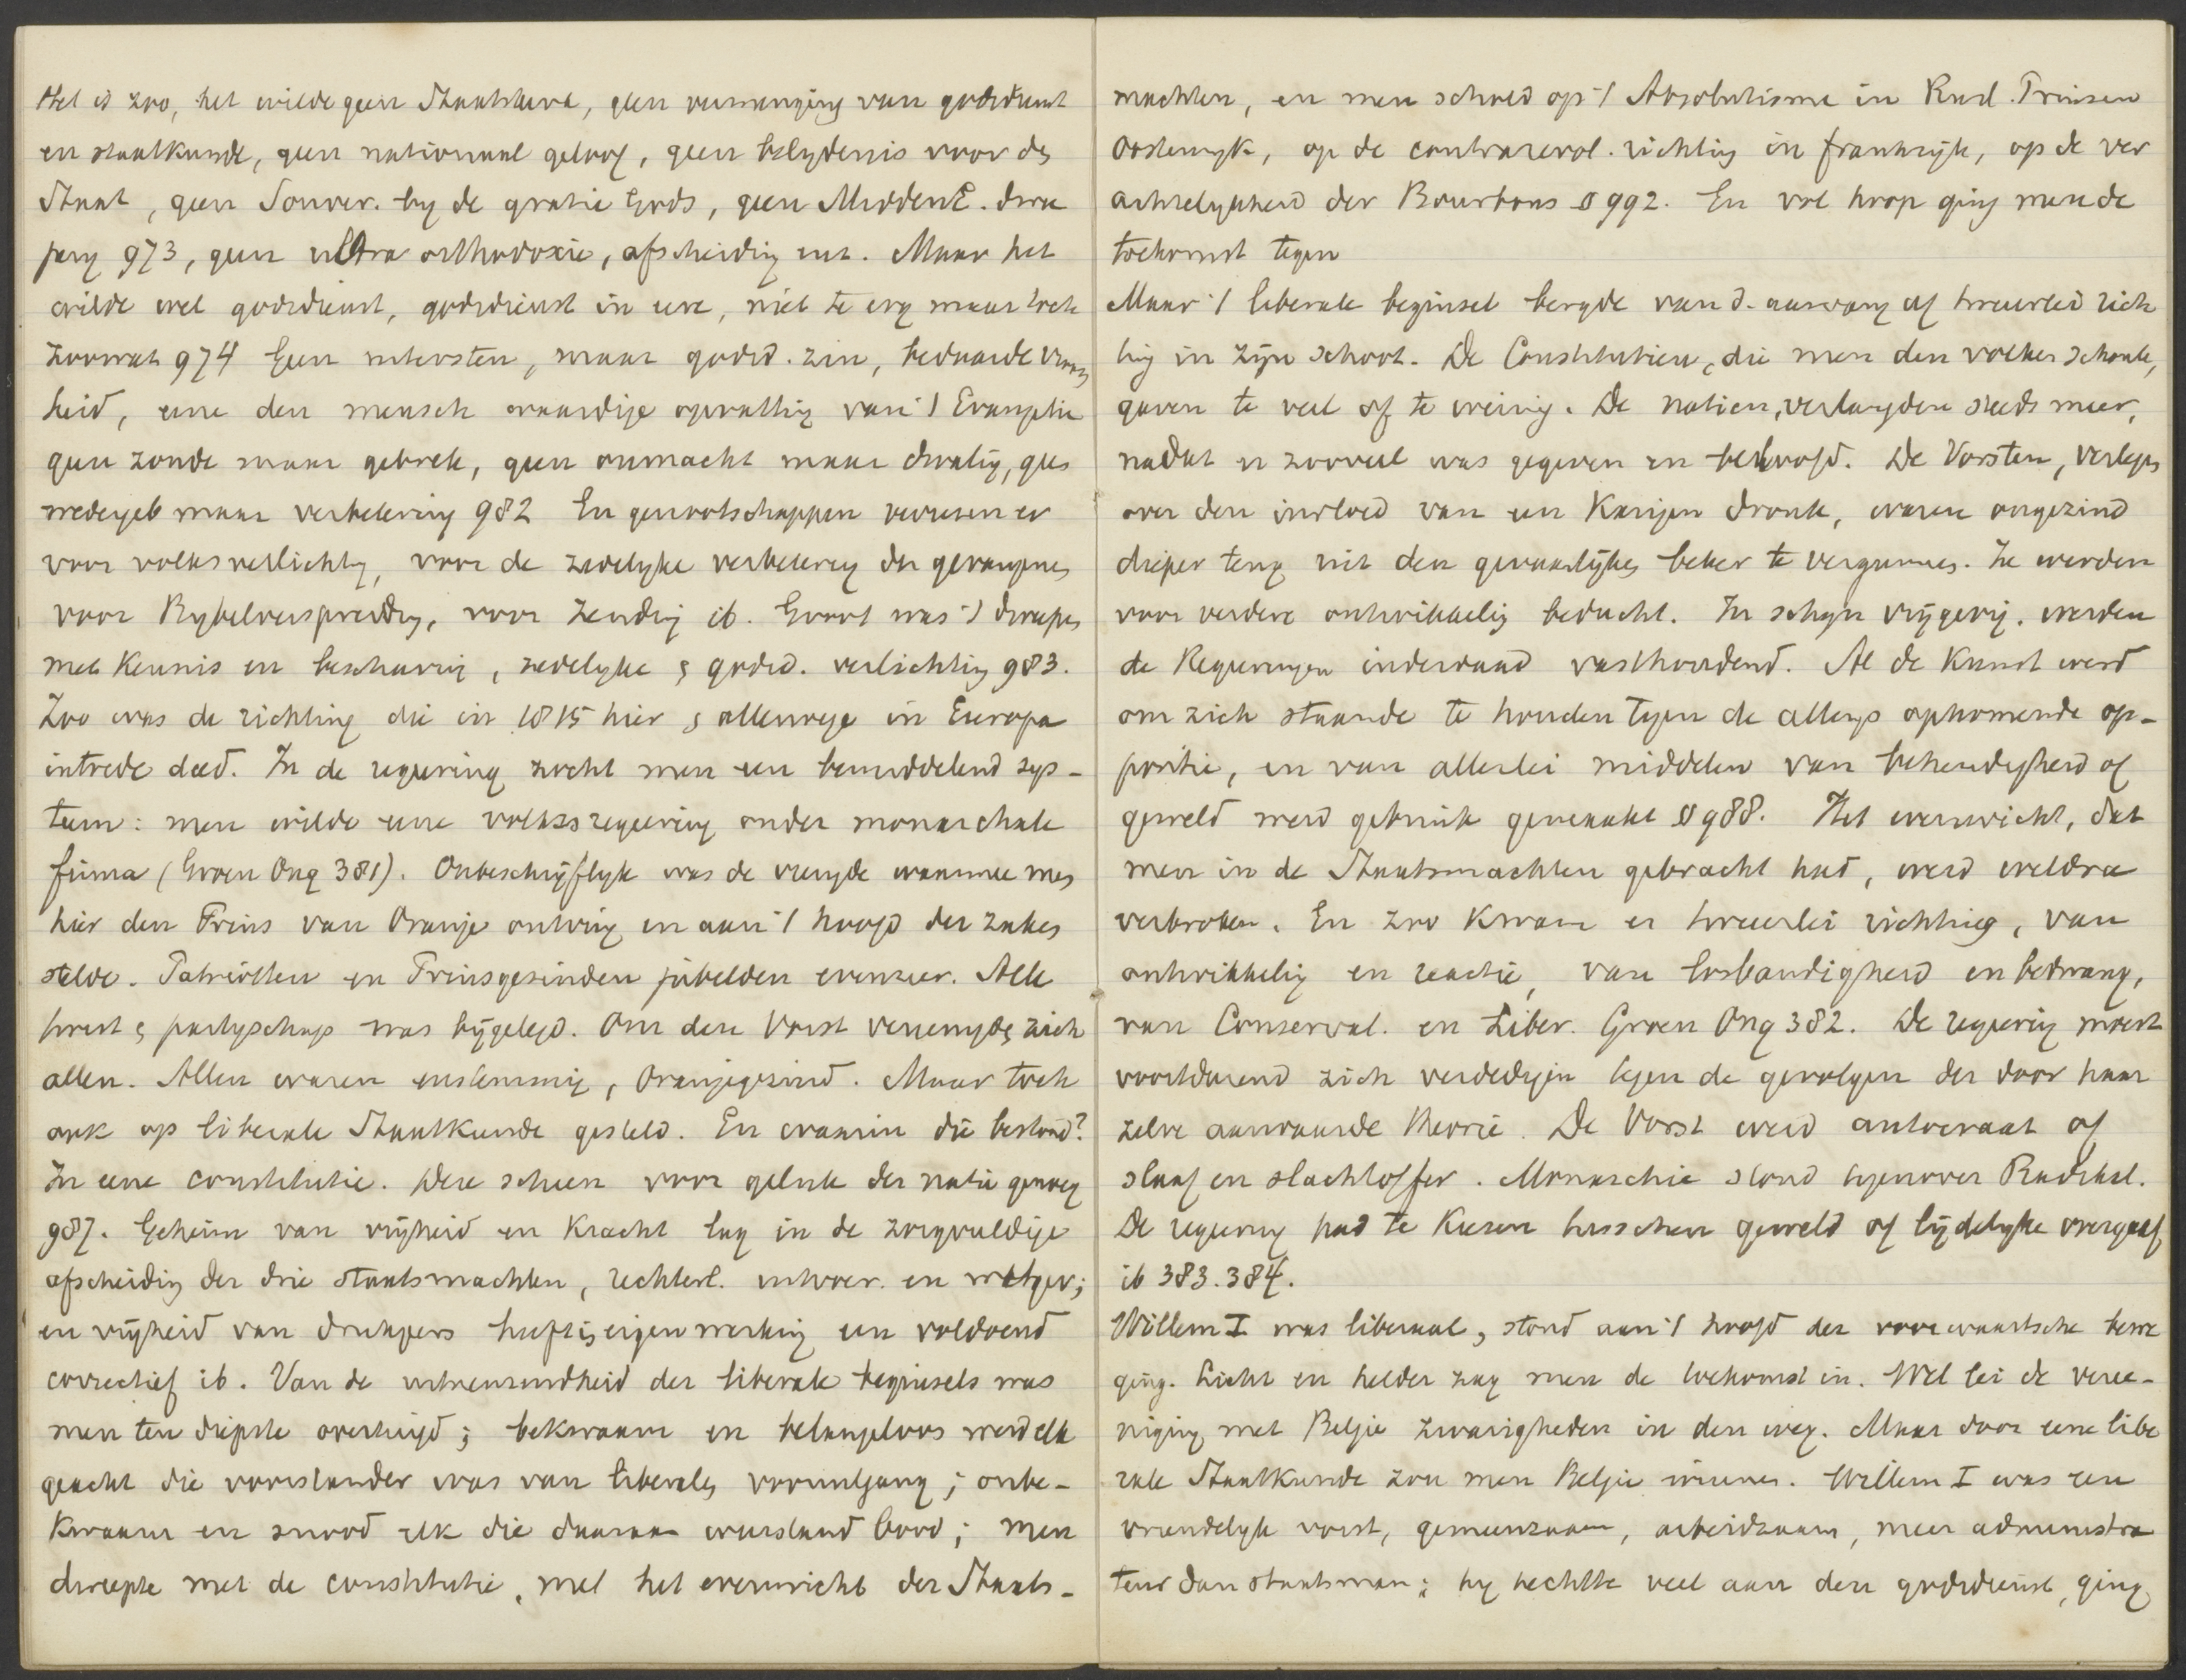 Het is zoo, het wilde geen Staatskerk, geen vermenging van godsdienst
en staatkunde, geen nationaal geloof, geen belydenis voor den
Staat, geen Souver. by de gratie Gods, geen MiddenE. dwee
pery 973, geen ultra orthodoxie, afscheiding enz. Maar het
wilde wel godsdienst, godsdienst in eere, niet te erg maar toch
zoowat 974 Geen uitersten, maar godsd. zin, bedaarde vroom
heid, eene den mensch waardige opvatting van 't Evangelie
geen zonde maar gebrek, geen onmacht maar dwaling, geen
wedergeb maar verbetering 982 En genootschappen verrezen er
voor volksverlichtg, voor de zedelyke verbetering der gevangenen
voor Bybelverspreidg, voor Zending ib. Groot was 't dweepen
met kennis en beschaving, zedelyke & godsd. verlichting 983.
Zoo was de richting die in 1815 hier & allerwege in Europa
intrede deed. In de regeering zocht men een bemiddelend sys-
teem: men wilde eene volksregeering onder monarchale
firma (Groen Ong 381). Onbeschrijflyk was de vreugde waarmee men
hier den Prins van Oranje ontving en aan 't hoofd der zaken
stelde. Patriotten en Prinsgezinden jubelden evenzeer. Alle
twist & partyschap was bijgelegd. Om den Vorst vereenigde zich
allen. Allen waren eenstemmig, Oranjegezind. Maar toch
ook op liberale Staatkunde gesteld. En waarin die bestond?
In eene constitutie. Deze scheen voor geluk der natie genoeg
987. Geheim van vrijheid en kracht lag in de zorgvuldige
afscheiding der drie staatsmachten, rechterl. uitvoer. en wetgev;
en vrijheid van drukpers heeft in eigen werking een voldoend
correctief ib. Van de uitnemendheid der liberale beginsels was
men ten diepste overtuigd; bekwaam en belangeloos werd elk
geacht die voorstander was van liberalen vooruitgang; onbe-
kwaam en snood elk die daaraan weerstand bood; men
dweepte met de constitutie, met het evenwicht der Staats-
machten, en men schold op 't Absolutisme in Rusl. Pruisen
Oostenryk, op de contrarevol. richting in Frankrijk, op de ver
achtelykheid der Bourbons § 992. En vol hoop ging men de
toekomst tegen
Maar 't liberale beginsel bergde van d. aanvang af tweeërlei rich
ting in zijn schoot. De Constitutien, die men den volken schonk,
gaven te veel of te weinig. De natien, verlangden steeds meer,
nadat er zooveel was gegeven en beloofd. De Vorsten, verlegen
over den invloed van een karigen dronk, waren ongezind
dieper teug uit den gevaarlijken beker te vergunnen. Ze werden
voor verdere ontwikkeling beducht. In schijn vrijgevig. werden
de Regeeringen inderdaad vasthoudend. Al de kunst werd
om zich staande te houden tegen de allengs opkomende op-
positie, en van allerlei middelen van behendigheid of
geweld werd gebruik gemaakt § 988. Het evenwicht, dat
men in de Staatsmachten gebracht had, werd weldra
verbroken. En zoo kwam er tweeërlei richting, van
ontwikkeling en reactie, van losbandigheid en bedwang,
van Conservat. en Liber. Groen Ong 382. De regeering moest
voortdurend zich verdedigen tegen de gevolgen der door haar
zelve aanvaarde theorie. De Vorst werd autocraat of
slaaf en slachtoffer. Monarchie stond tegenover Radikal.
De regeering had te kiezen tusschen geweld of lijdelyke overgaaf
ib 383. 384.
Willem I was liberaal, stond aan 't hoofd der voorwaartsche bewe
ging. Licht en helder zag men de toekomst in. Wel lei de veree-
niging met Belgie zwarigheden in den weg. Maar door eene libe
rale Staatkunde zou men Belgie winnen. Willem I was een
vriendelyk vorst, gemeenzaam, arbeidzaam, meer administra
teur dan staatsman; hy hechtte veel aan den godsdienst, ging